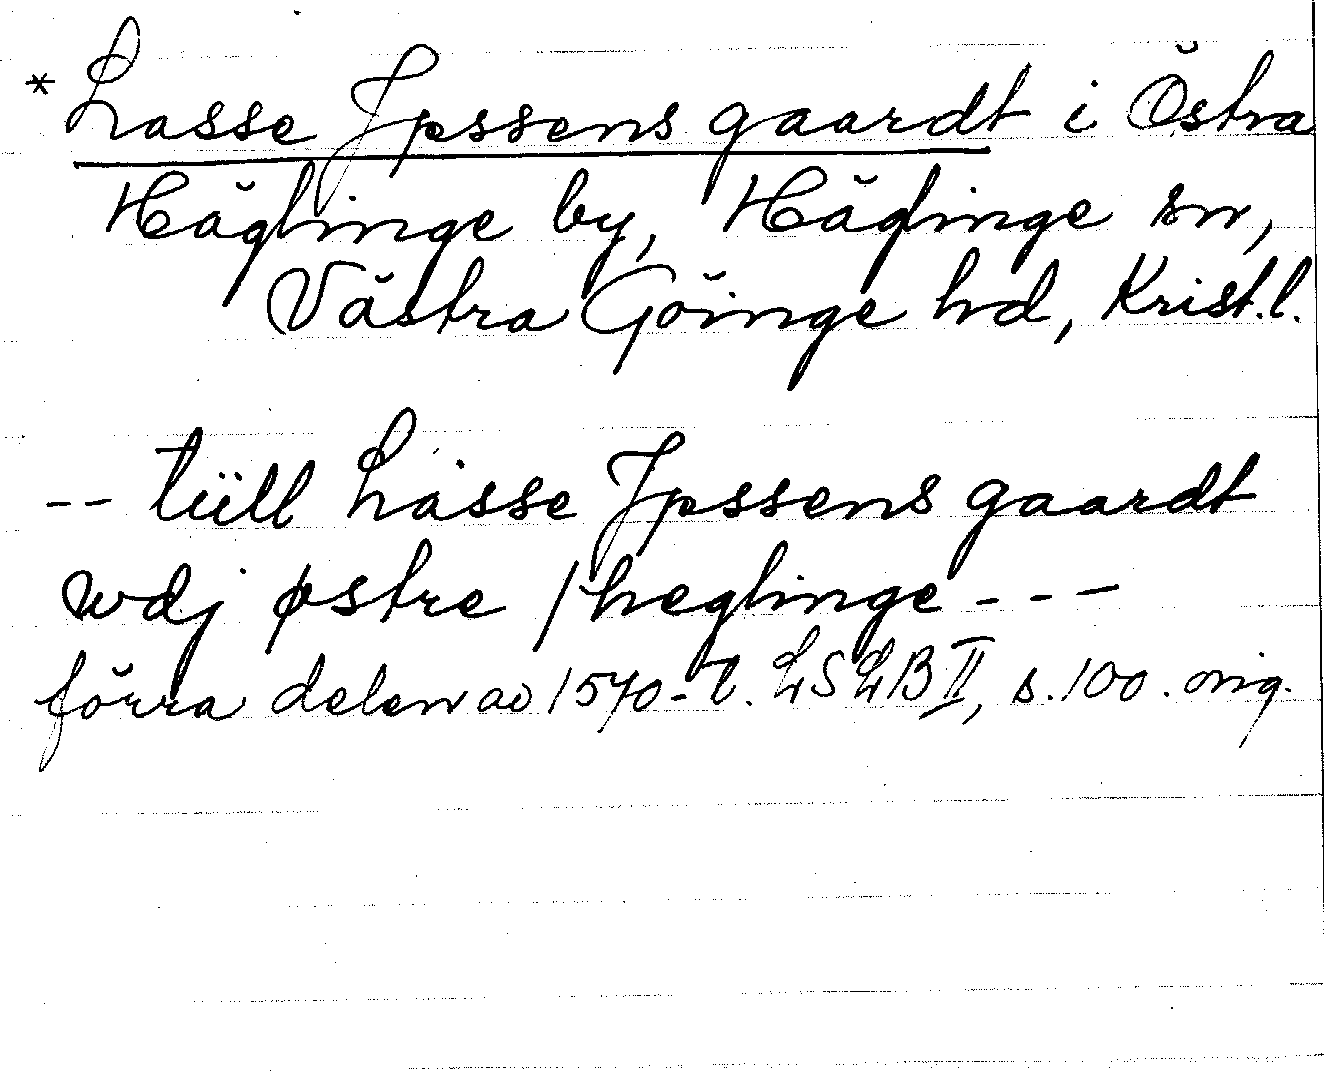 * Lasse Jpssens gaardt i Östra
Häglinge by, Häglinge sn,
Västra Göinge hd, Krist.l.
-- tüll Lasse Jpssens gaardt
wdj østre / heglinge ---
förra delen av 1570-t. LSLB II, s. 100. orig.